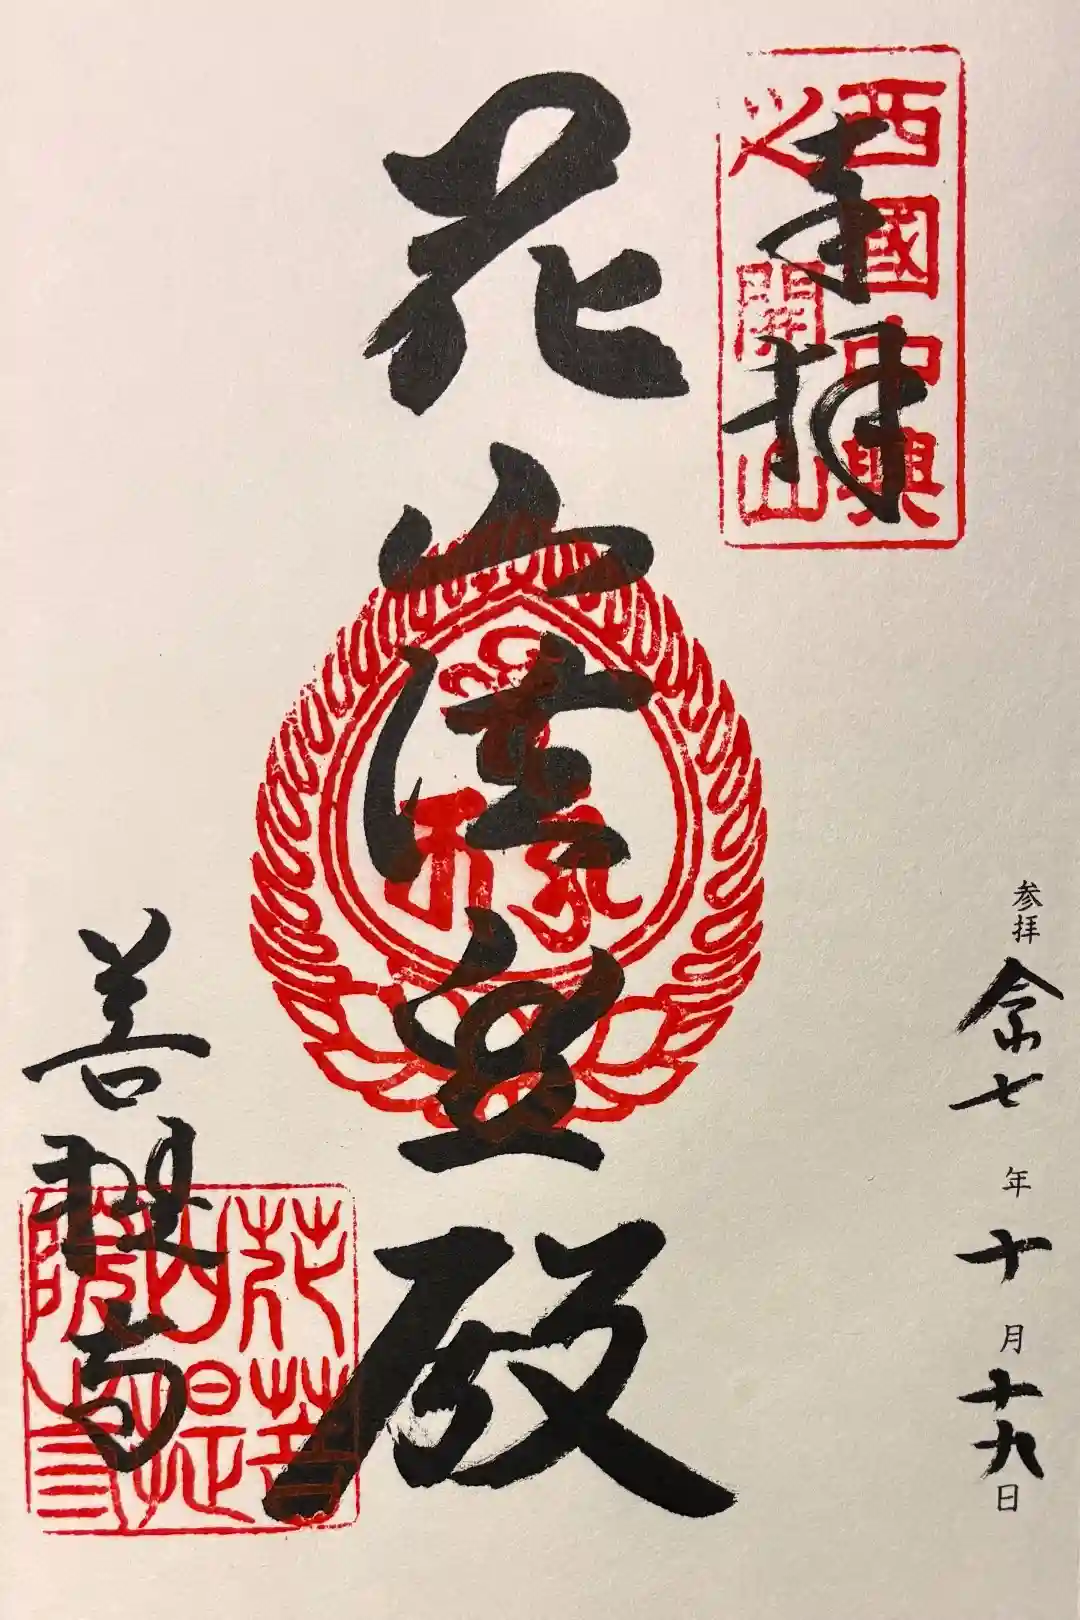 奉拝
西國中興
之開山
花山法皇殿
参拝
令和七年十月十九日
菩提寺
花山院
菩提